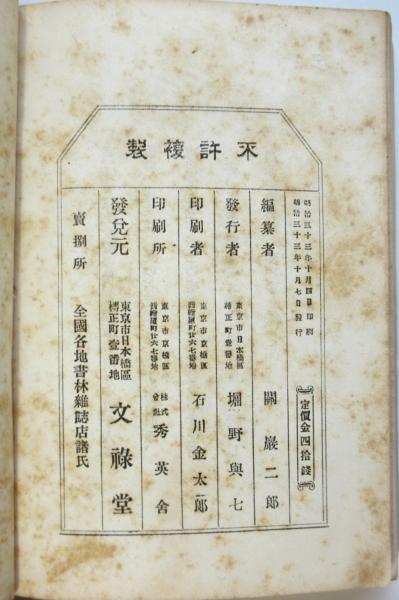 不許複製
明治三十三年十月四日印刷
明治三十三年十月七日發行
定價金四拾錢
編纂者 關巖二郎
發行者 東京市日本橋區榑正町壹番地 堀野與七
印刷者 東京市京橋區西紺屋町廿六七番地 石川金太郎
印刷所 東京市京橋區西紺屋町廿六七番地 株式會社 秀英舍
發兌元 東京市日本橋區榑正町壹番地 文祿堂
賣捌所 全國各地書林雜誌店諸氏